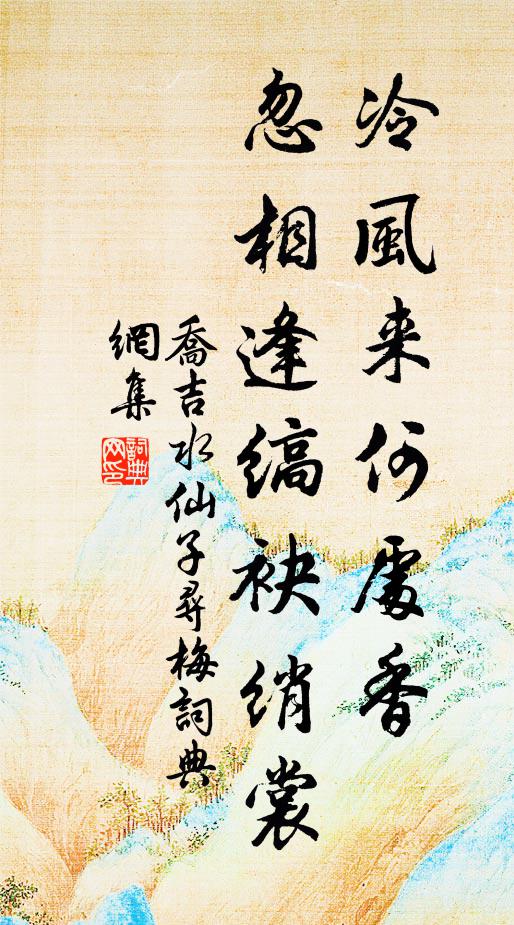 冷風来何處香
忽相逢縞袂綃裳
喬吉水仙子尋梅詞典
網集
詞典网印